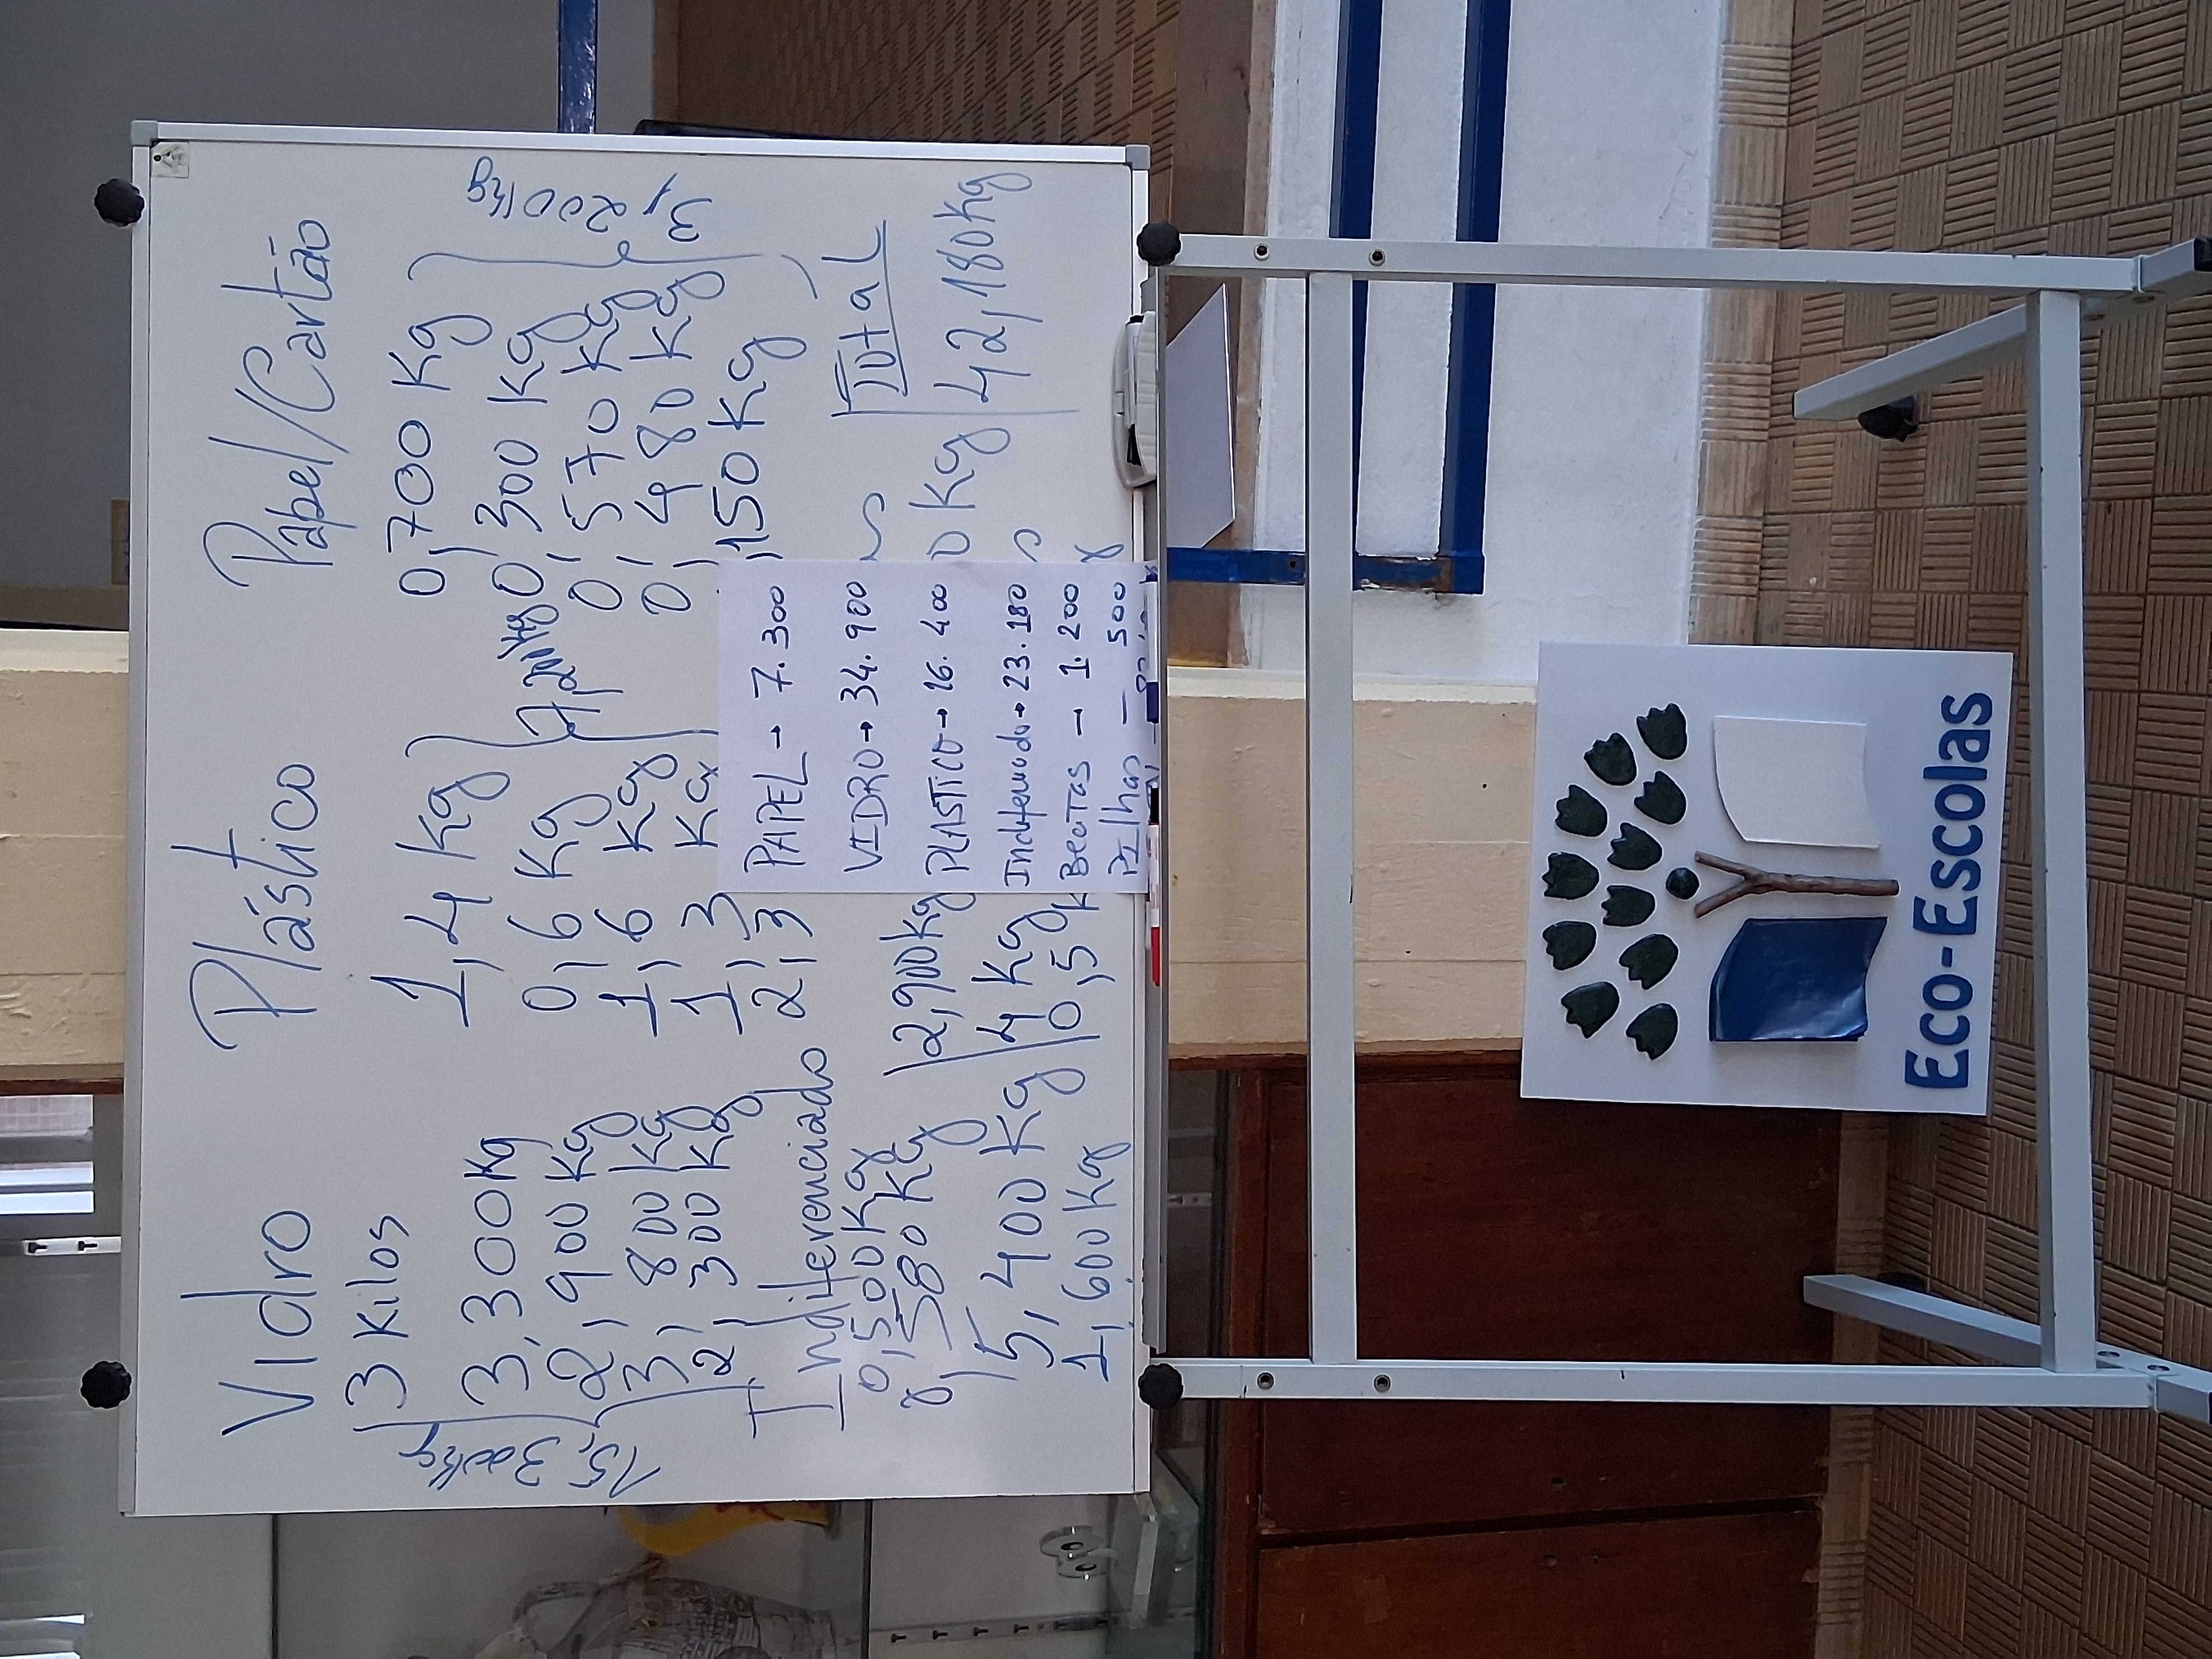 Vidro
3 Kilos
3,300Kg
2,900 Kg
3,800 Kg
2,300 Kg
15,300Kg
Plástico
1,4 Kg
0,6 Kg
1,6 Kg
1,3 Kg
2,3
7,200Kg
Papel/Cartão
0,700 Kg
0,300 Kg
0,570 Kg
0,480 Kg
,150 Kg
3,200Kg
Indiferenciado
0,500Kg
8,580 Kg
5,400 Kg
1,600Kg
2,900Kg
4 Kg
0,5
0 Kg
Total
42,180Kg
PAPEL → 7.300
VIDRO → 34.900
PLASTICO → 16.400
Indiferenciado → 23.180
Beatas — 1.200
Pilhas — 500
Eco-Escolas